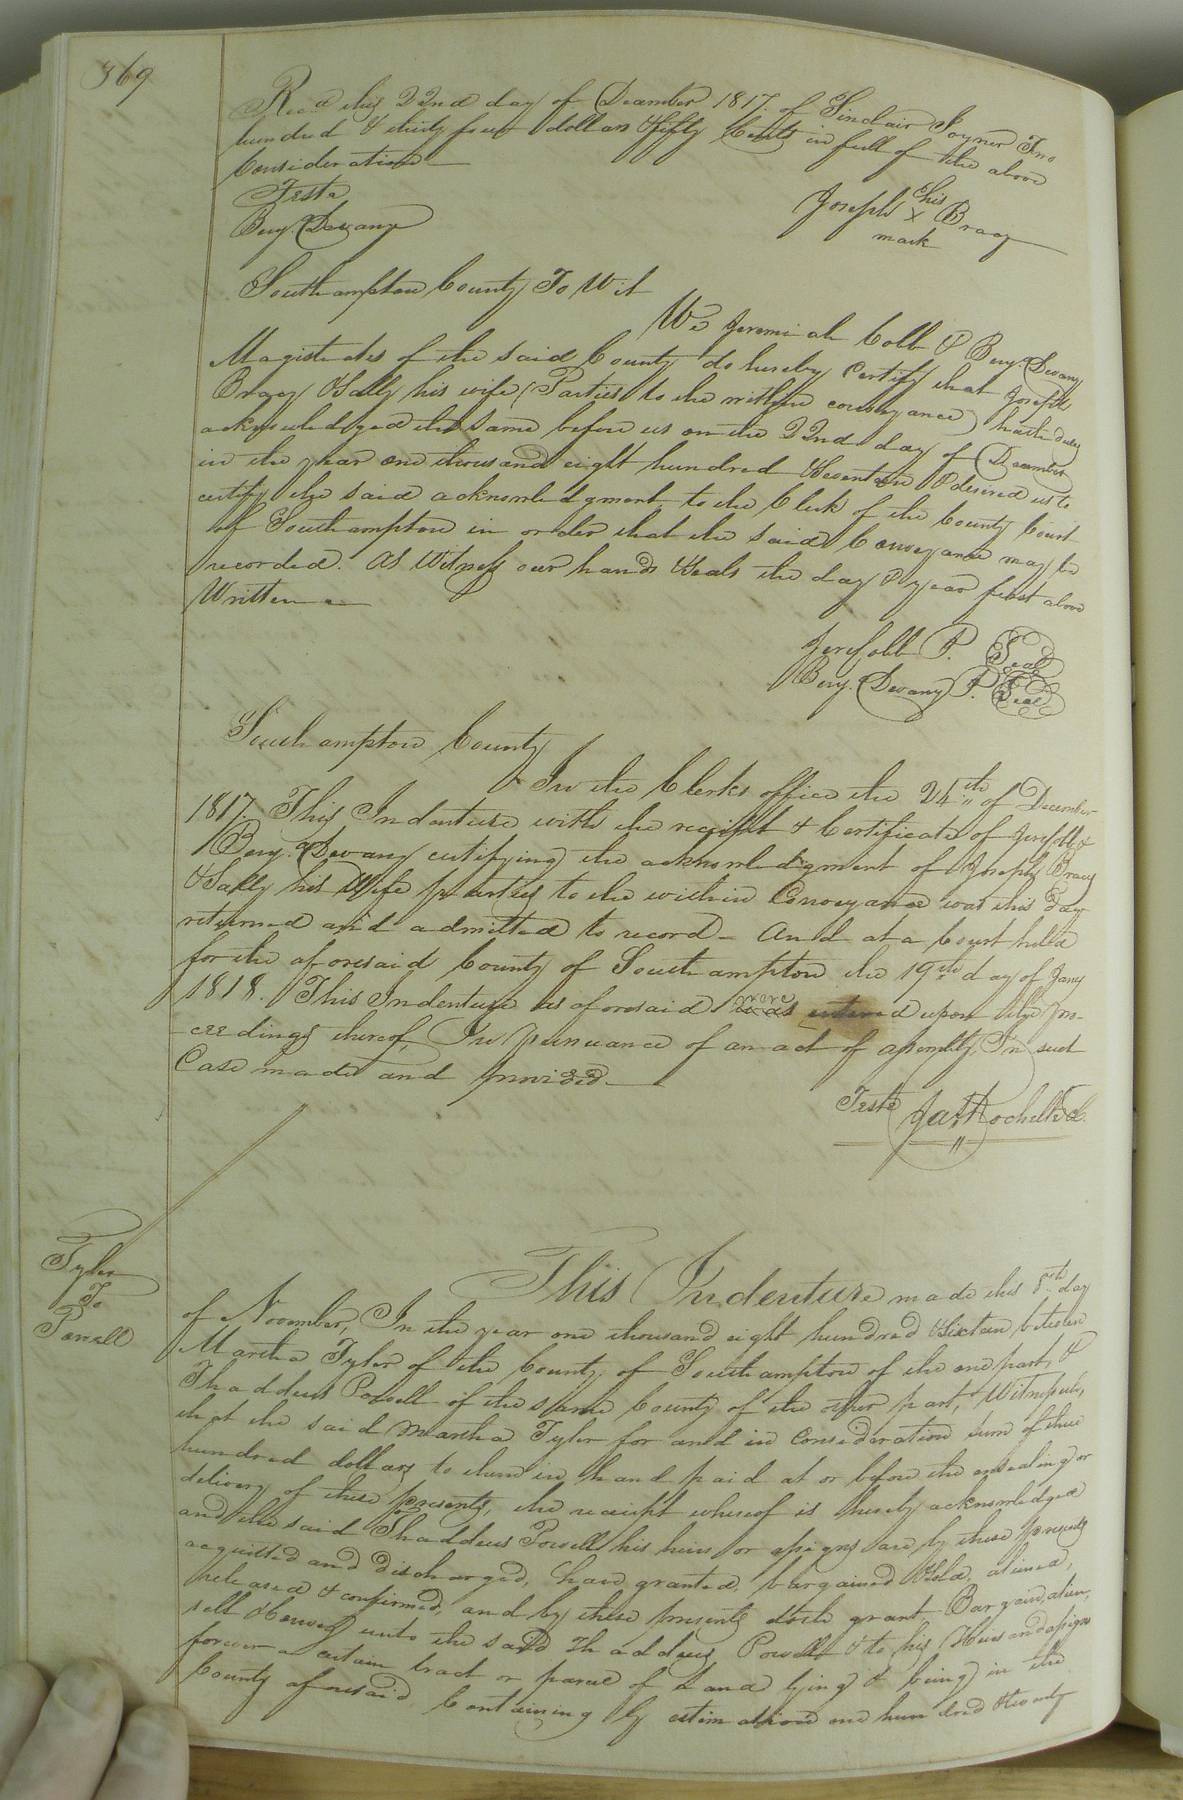 369
Recd this 22nd day of December 1817. of Sinclair Joyner Two
hundred & thirty four dollars & fifty Cents in full of the above
Consideration
Teste
Benj. Devany
his
Joseph X Bracy
mark
Southampton County To Wit
We Jeremiah Cobb & Benj. Devany
Magistrates of the said County do hereby Certify that Joseph
Bracy & Sally his wife (Parties to the within conveyance) hath duly
acknowledged the same before us on the 22nd day of December
in the year one thousand eight hundred & seventeen & desired us to
certify the said acknowledgment to the Clerk of the County Court
of Southampton in order that the said Conveyance may be
recorded. As Witness our hands & seals the day & year first above
Written
Jere Cobb P. Seal
Benj. Devany P. Seal
Southampton County
In the Clerks office the 24th of December
1817. This Indenture with the receipt & Certificate of Jere Cobb &
Benj. Devany certifying the acknowledgment of Joseph Bracy
& Sally his Wife parties to the within Conveyance was this day
returned and admitted to record - And at a Court held
for the aforesaid County of Southampton the 19th day of Jany
1818. This Indenture as aforesaid were entered upon the pro-
ceedings thereof, In pursuance of an act of assembly, In such
Case made and provided
Teste Jas Rochelle
Tyler
To
Powell
This Indenture made this 8th day
of November, In the year one thousand eight hundred & sixteen between
Martha Tyler of the County of Southampton of the one part, &
Thaddeus Powell of the same County of the other part, Witnesseth,
that the said Martha Tyler for and in Consideration sum of three
hundred dollars to them in hand paid at or before the ensealing or
delivery of these presents, the receipt whereof is hereby acknowledged
and the said Thaddeus Powell his heirs or assigns are by these presents
acquitted and discharged, have granted, bargained & sold, aliened,
released & confirmed, and by these presents doth grant, Bargain, alien,
sell & convey unto the said Thaddeus Powell & to his Heirs and assigns
forever a certain tract or parcel of Land lying & being in the
County aforesaid Containing by estimation one hundred & twenty